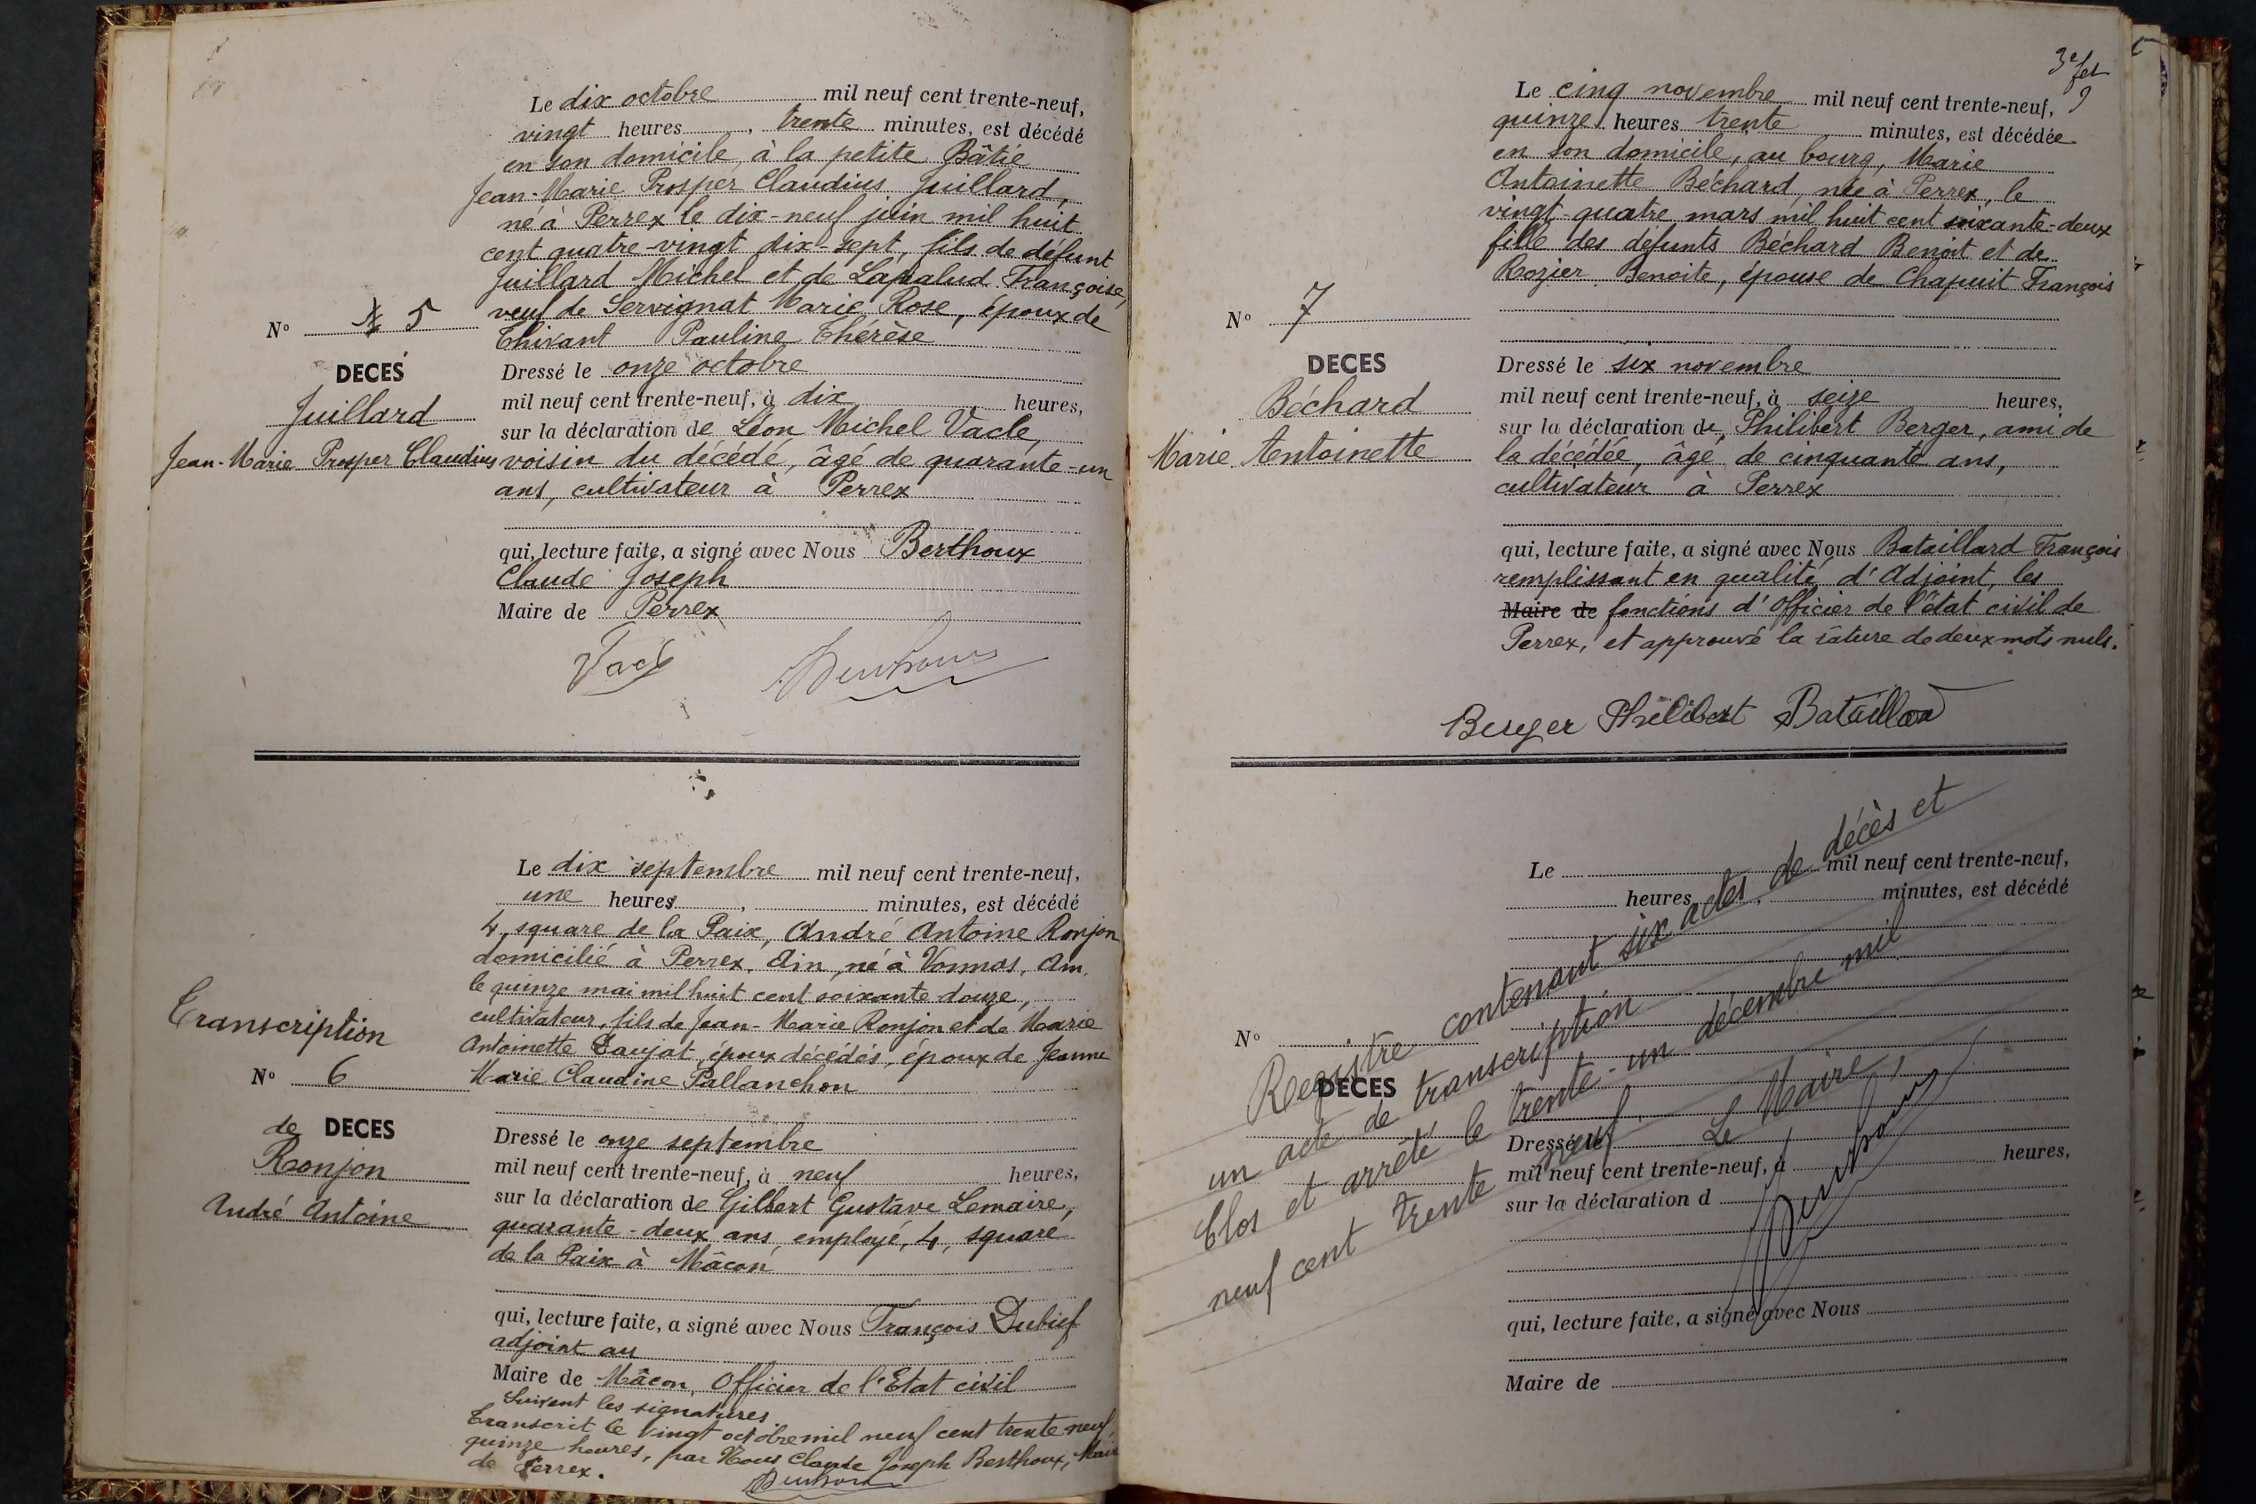 Le dix octobre mil neuf cent trente-neuf,
vingt heures, trente minutes, est décédé
en son domicile, à la petite Bâtie
Jean-Marie Prosper Claudius Juillard,
né à Perrex le dix-neuf juin mil huit
cent quatre-vingt dix-sept, fils de défunt
Juillard Michel et de Lapalud Françoise,
veuf de Servignat Marie Rose, époux de
Thivant Pauline Thérèse
N° 5
DECES
Juillard
Jean-Marie Prosper Claudius
Dressé le onze octobre
mil neuf cent trente-neuf, à dix heures,
sur la déclaration de Léon Michel Vacle,
voisin du décédé, âgé de quarante-un
ans, cultivateur à Perrex
qui, lecture faite, a signé avec Nous Berthoux
Claude Joseph
Maire de Perrex
Le dix septembre mil neuf cent trente-neuf,
une heures, minutes, est décédé
4, square de la Paix, André Antoine Ronjon
domicilié à Perrex, Ain, né à Vonnas, Ain,
le quinze mai mil huit cent soixante douze,
cultivateur, fils de Jean-Marie Ronjon et de Marie
Antoinette Taujat, époux décédés, époux de Jeanne
Marie Claudine Pallanchon
Transcription
N° 6
de DECES
Ronjon
André Antoine
Dressé le onze septembre
mil neuf cent trente-neuf, à neuf heures,
sur la déclaration de Gilbert Gustave Lemaire,
quarante-deux ans, employé, 4, square
de la Paix à Mâcon
qui, lecture faite, a signé avec Nous François Dubief
adjoint au
Maire de Mâcon, Officier de l'Etat civil
Suivent les signatures
Transcrit le vingt octobre mil neuf cent trente neuf,
quinze heures, par Nous Claude Joseph Berthoux, Maire
de Perrex.
3e fet
Le cinq novembre mil neuf cent trente-neuf,
quinze heures trente minutes, est décédée
en son domicile, au bourg, Marie
Antoinette Béchard, née à Perrex, le
vingt-quatre mars mil huit cent soixante-deux
fille des défunts Béchard Benoit et de
Rozier Benoite, épouse de Chapuit François
N° 7
DECES
Béchard
Marie Antoinette
Dressé le six novembre
mil neuf cent trente-neuf, à seize heures,
sur la déclaration de Philibert Berger, ami de
la décédée, âgé de cinquante ans,
cultivateur à Perrex
qui, lecture faite, a signé avec Nous Bataillard François
remplissant en qualité d'Adjoint, les
Maire de fonctions d'Officier de l'état civil de
Perrex, et approuvé la rature de deux mots nuls.
Berger Philibert Bataillard
Le mil neuf cent trente-neuf,
heures, minutes, est décédé
N°
DECES
Dressé le
mil neuf cent trente-neuf, à heures,
sur la déclaration d
qui, lecture faite, a signé avec Nous
Maire de
Registre contenant six actes de décès et
un acte de transcription
Clos et arrêté le trente-un décembre mil
neuf cent trente neuf.
Le Maire,